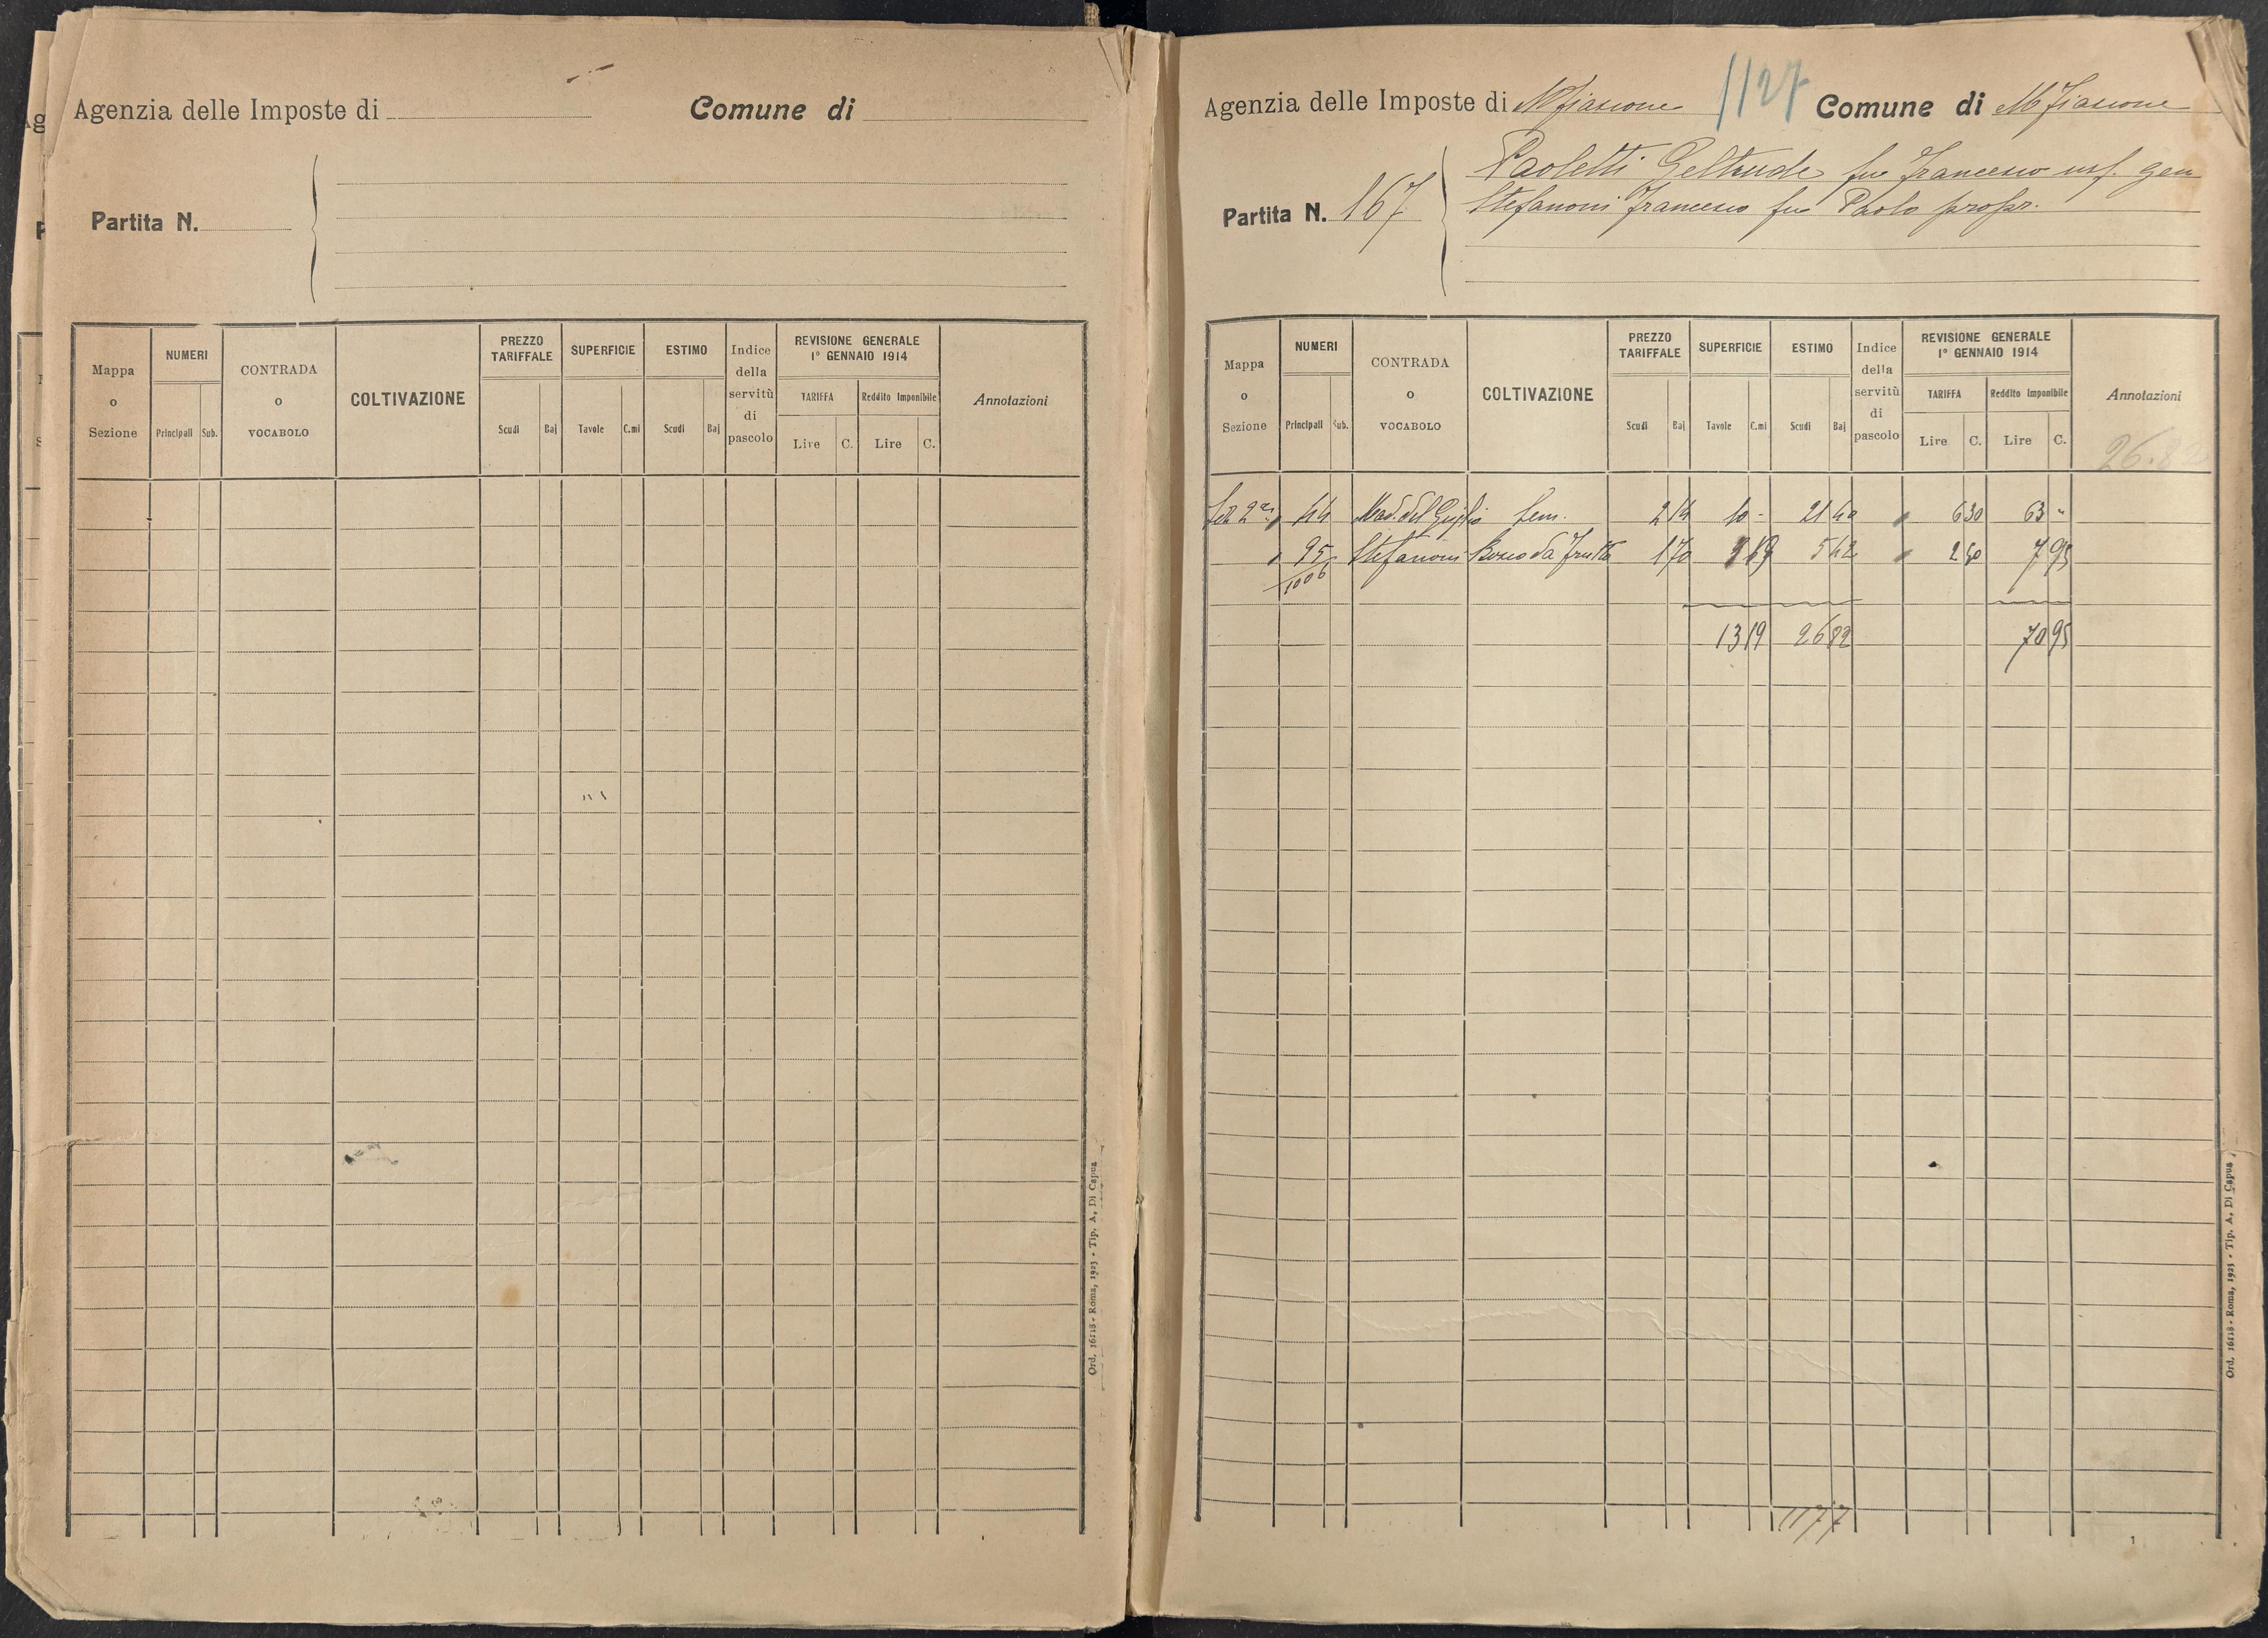 Agenzia delle Imposte di
Comune di
Partita N.
Mappa o Sezione
NUMERI
Principali Sub.
CONTRADA o VOCABOLO
COLTIVAZIONE
PREZZO TARIFFALE
Scudi Baj
SUPERFICIE
Tavole C.mi
ESTIMO
Scudi Baj
Indice della servitù di pascolo
REVISIONE GENERALE
1° GENNAIO 1914
TARIFFA
Lire C.
Reddito Imponibile
Lire C.
Annotazioni
Ord. 16118 - Roma, 1923 - Tip. A. Di Capua
Agenzia delle Imposte di M Fiascone 1127 Comune di M Fiascone
Paoletti Geltrude fu Francesco usf. gen
Partita N. 167
Stefanoni Francesco fu Paolo propr.
Mappa o Sezione
NUMERI
Principali Sub.
CONTRADA o VOCABOLO
COLTIVAZIONE
PREZZO TARIFFALE
Scudi Baj
SUPERFICIE
Tavole C.mi
ESTIMO
Scudi Baj
Indice della servitù di pascolo
REVISIONE GENERALE
1° GENNAIO 1914
TARIFFA
Lire C.
Reddito Imponibile
Lire C.
Annotazioni
26.82
Sez 2a 44 Mad. del Giglio Sem. 2 14 10 - 21 40 6 30 63 "
95 Stefanoni Bosco da frutto 1 70 3 19 5 42 2 50 7 95
1006
13 19 26 82 70 95
1177
1
Ord. 16118 - Roma, 1923 - Tip. A. Di Capua